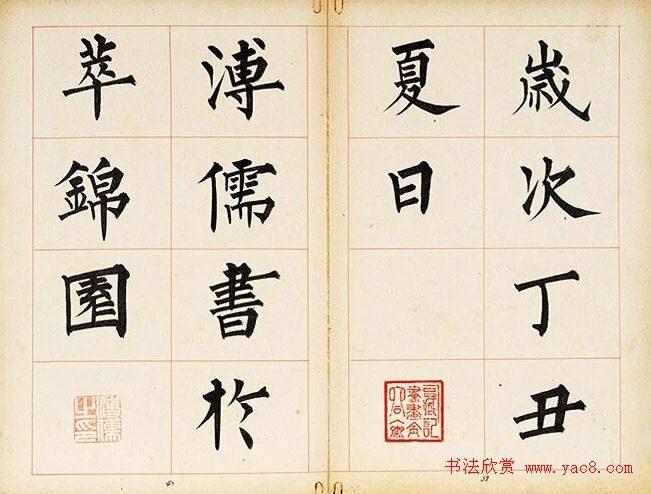 歲次丁丑
夏日
溥儒書於
萃錦園
39
40
书法欣赏 www.yac8.com